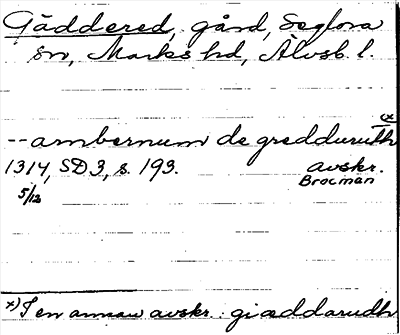 Gäddered, gård, Seglora
sn, Marks hd, Älvsb. l.
x)
--ambernum de gredduruth
1314, SD3, s. 193. avskr.
5/12 Brocman
x) I en annan avskr.: giæddarudh